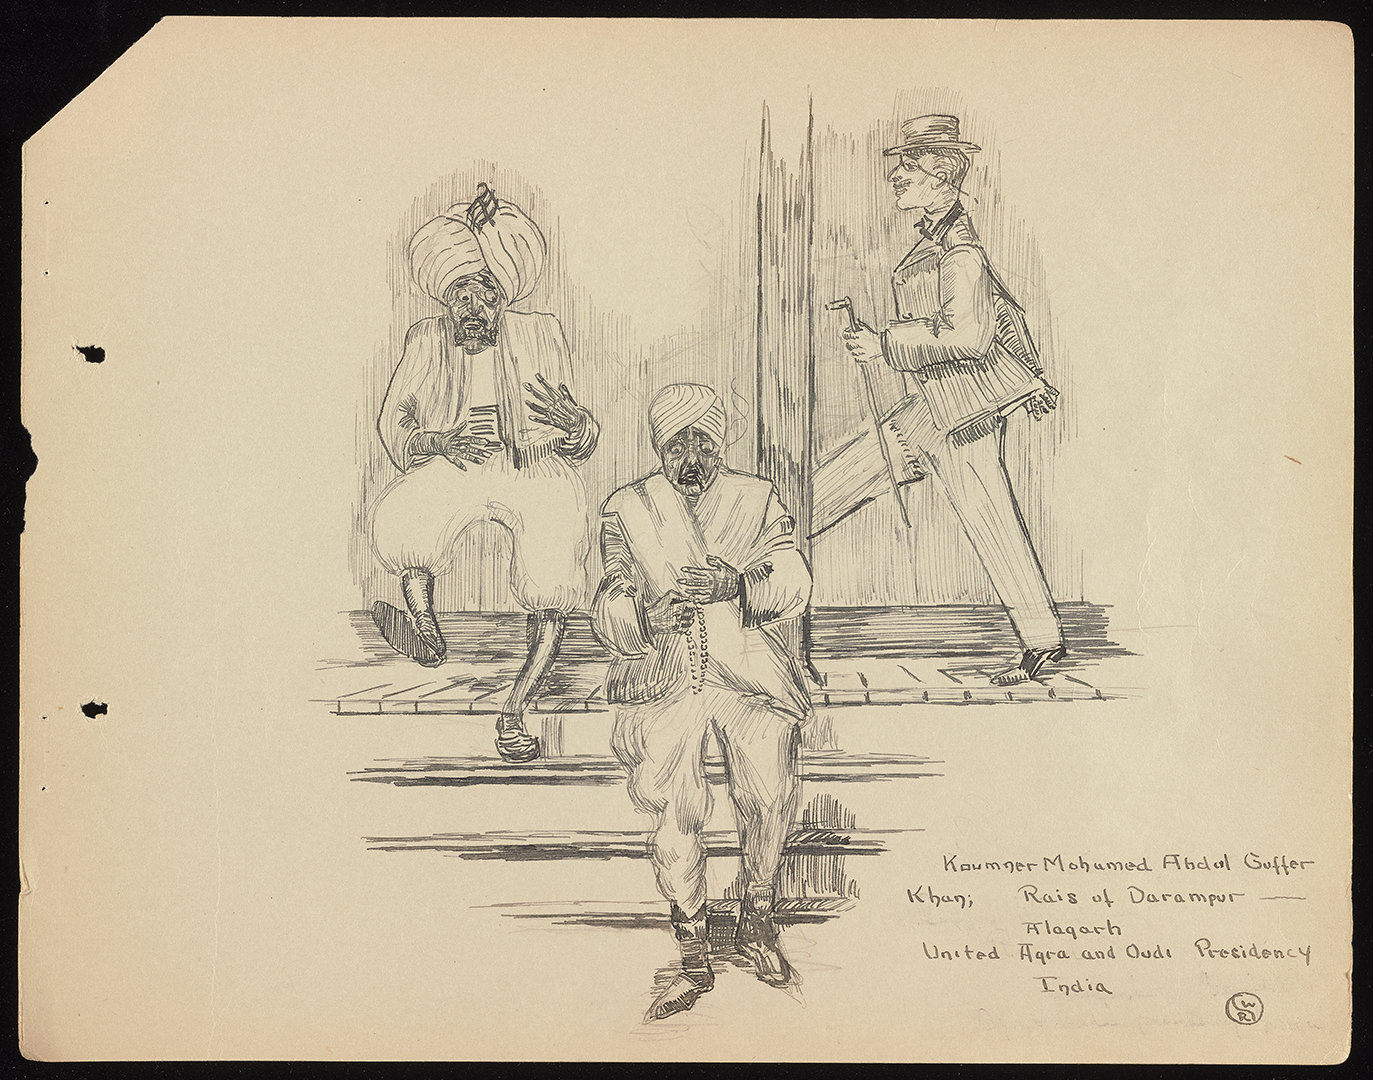 Koumner Mohamed Abdul Guffer
Khan; Rais of Darampur —
Alagarh
United Agra and Oudi Presidency
India
WR